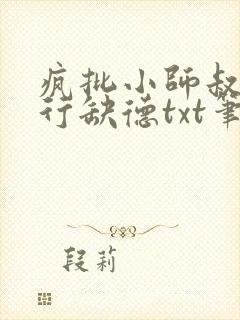 疯批小师叔
行缺德txt笔
段莉